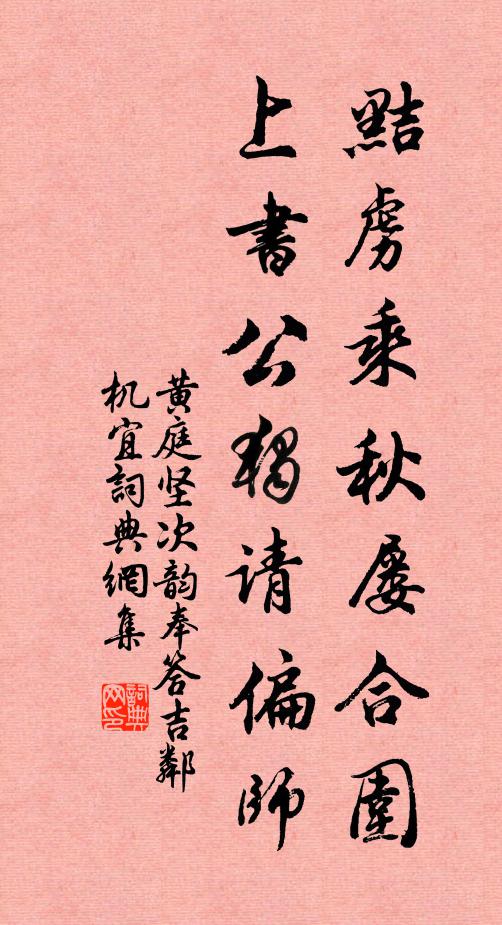 黠虜乘秋屡合圍
上書公獨請偏師
黄庭坚次韵奉答吉鄰
机宜詞典網集
詞典網印